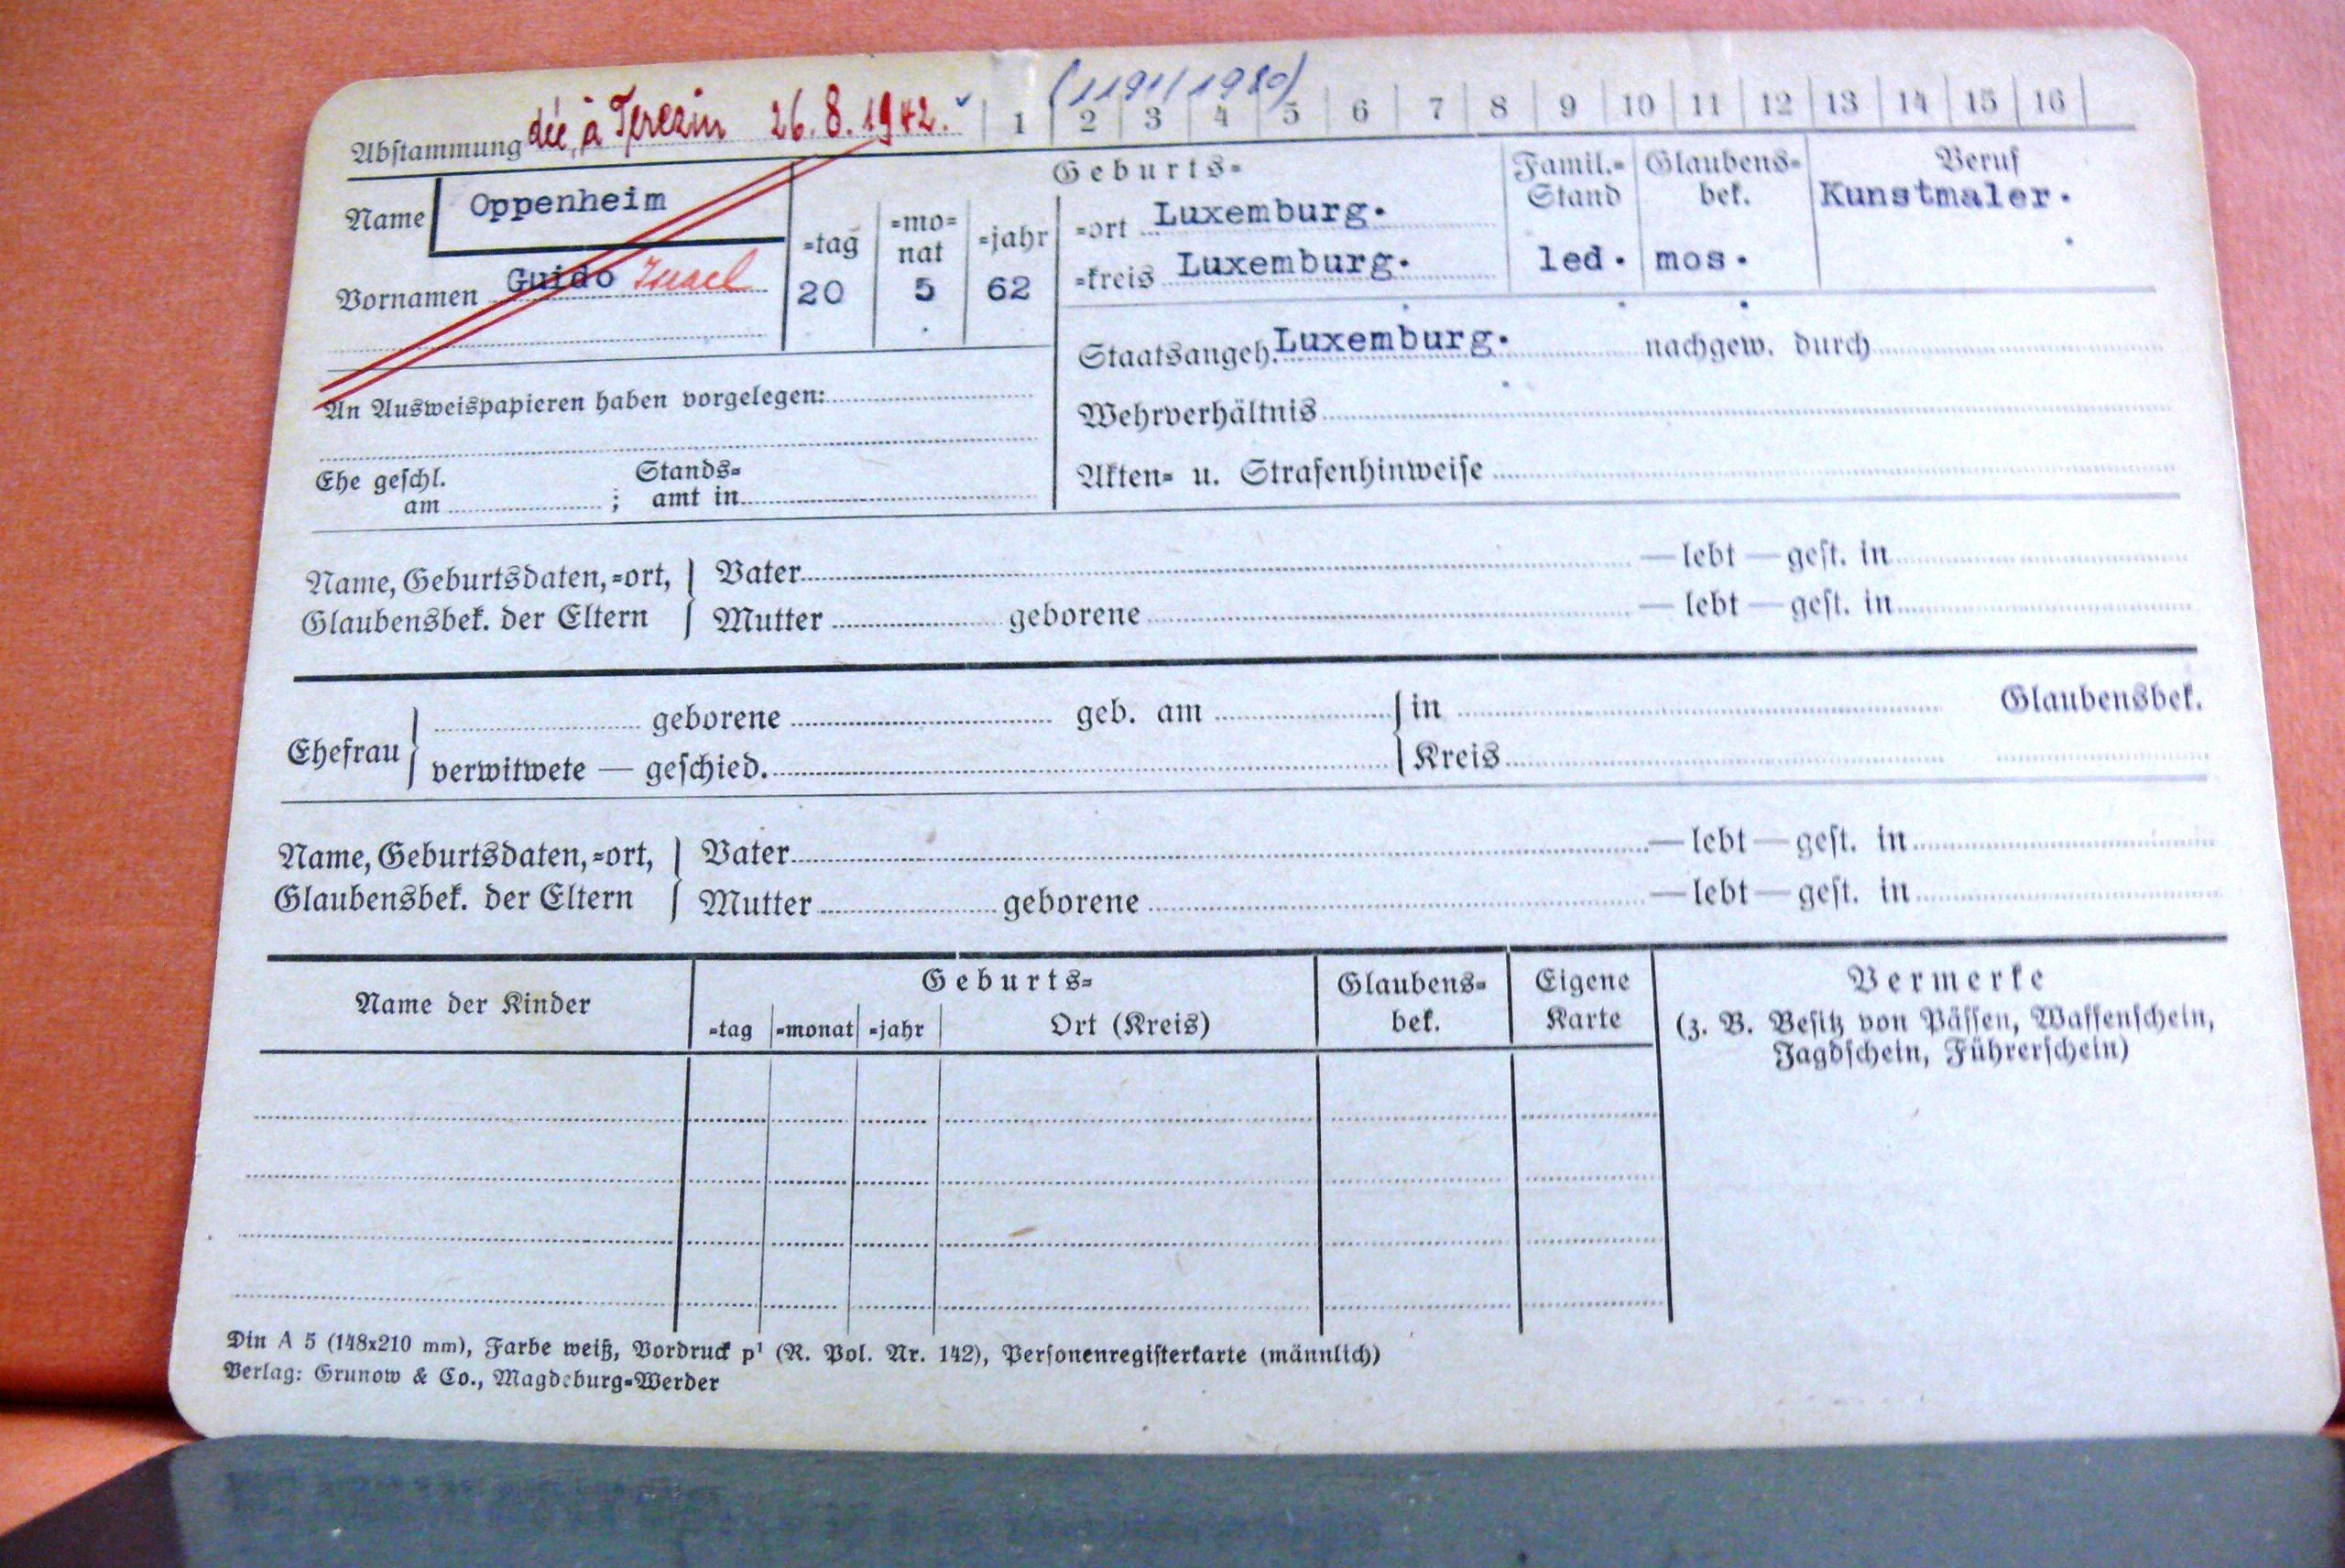 (1191/1980)
Abstammung déc. à Terezin 26.8.1942. 1 2 3 4 5 6 7 8 9 10 11 12 13 14 15 16
Name Oppenheim
Vornamen Guido Israel
Geburts-
-tag -mo-nat -jahr
20 5 62
-ort Luxemburg.
-kreis Luxemburg.
Famil.-Stand
led.
Glaubens-bek.
mos.
Beruf
Kunstmaler.
Staatsangeh. Luxemburg. nachgew. durch
Wehrverhältnis
Akten- u. Strafenhinweise
An Ausweispapieren haben vorgelegen:
Ehe geschl. am ; Stands-amt in
Name, Geburtsdaten,-ort, Glaubensbek. der Eltern
Vater — lebt — gest. in
Mutter geborene — lebt — gest. in
Ehefrau
geborene geb. am in Glaubensbek.
verwitwete — geschied. Kreis
Name, Geburtsdaten,-ort, Glaubensbek. der Eltern
Vater — lebt — gest. in
Mutter geborene — lebt — gest. in
Name der Kinder
Geburts-
-tag -monat -jahr Ort (Kreis)
Glaubens-bek.
Eigene Karte
Vermerke
(z. B. Besitz von Pässen, Waffenschein,
Jagdschein, Führerschein)
Din A 5 (148x210 mm), Farbe weiß, Vordruck p¹ (R. Pol. Nr. 142), Personenregisterkarte (männlich)
Verlag: Grunow & Co., Magdeburg-Werder